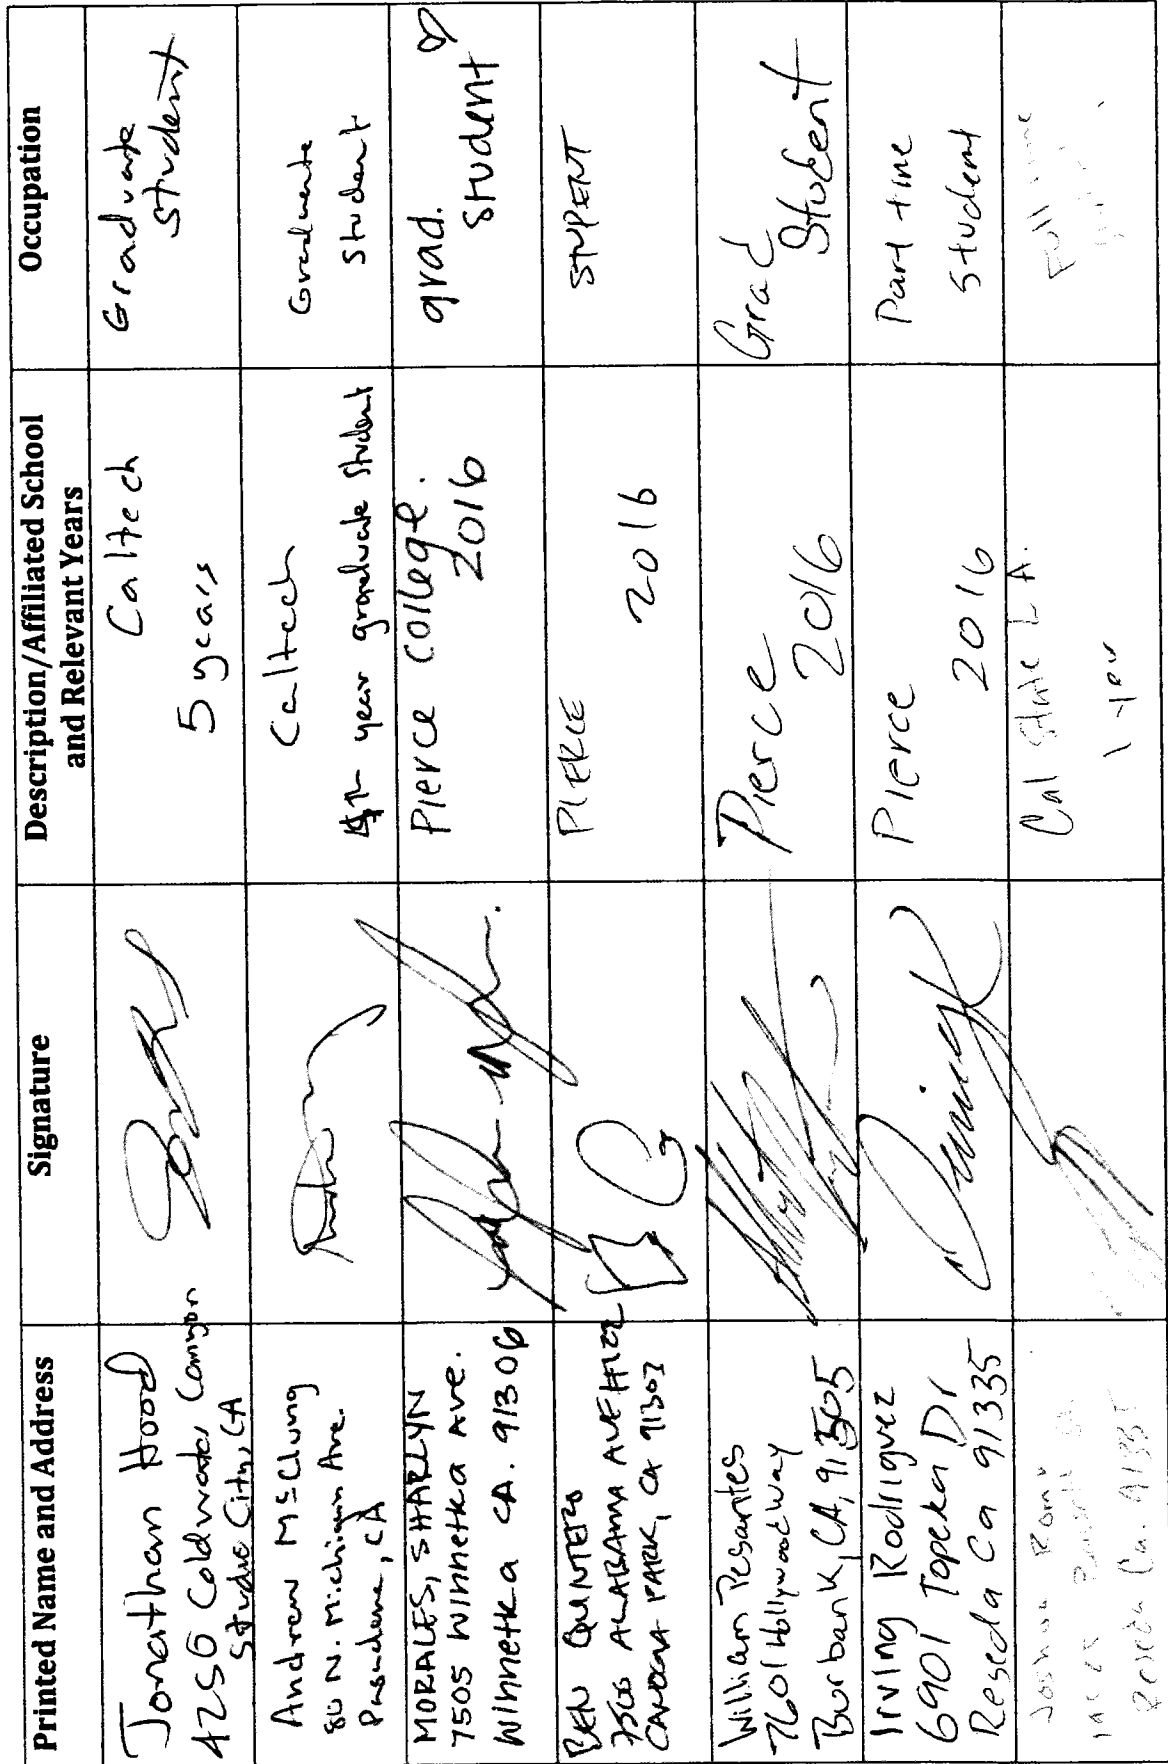 Printed Name and Address
Signature
Description/Affiliated School
and Relevant Years
Occupation
Jonathan Hood
4256 Coldwater Canyon
Studio City, CA
Caltech
5 years
Graduate
student
Andrew McClung
80 N. Michigan Ave.
Pasadena, CA
Caltech
4th year graduate student
Graduate
student
MORALES, SHARLYN
7505 Winnetka Ave.
Winnetka CA. 91306
Pierce College.
2016
grad.
student
BEN QUINTERO
ALABAMA AVE
CANOGA PARK, CA 91303
PIERCE
2016
STUDENT
William Pesantes
7601 Hollywood Way
Burbank, CA, 91505
Pierce
2016
Grad
Student
Irving Rodriguez
6901 Topeka Dr
Reseda Ca 91335
Pierce
2016
Part time
Student
Joshua
Reseda Ca. 91335
Cal State L.A.
1 year
Full time